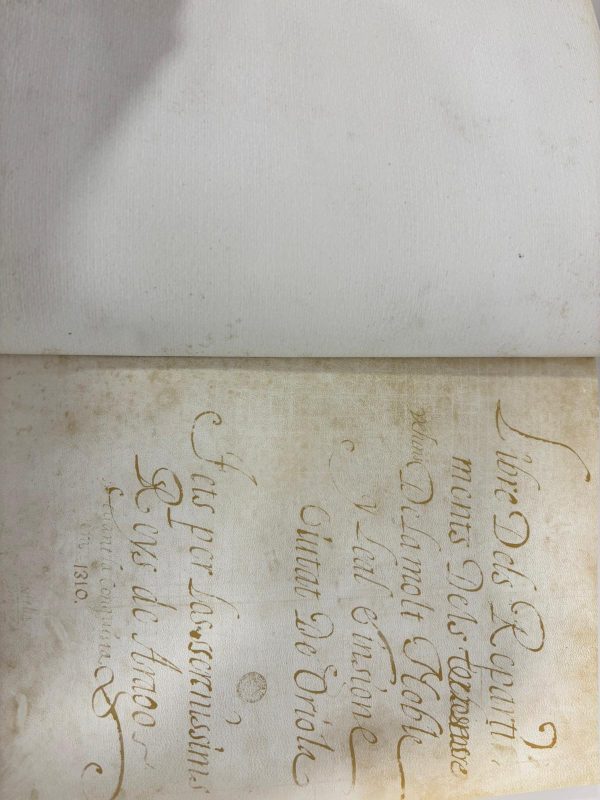 Libre Dels Reparti
ments Dels
De la molt Noble
y Leal E insigne
Ciutat De Oriola
fets per los serenissims
Reys de Arago
1310.